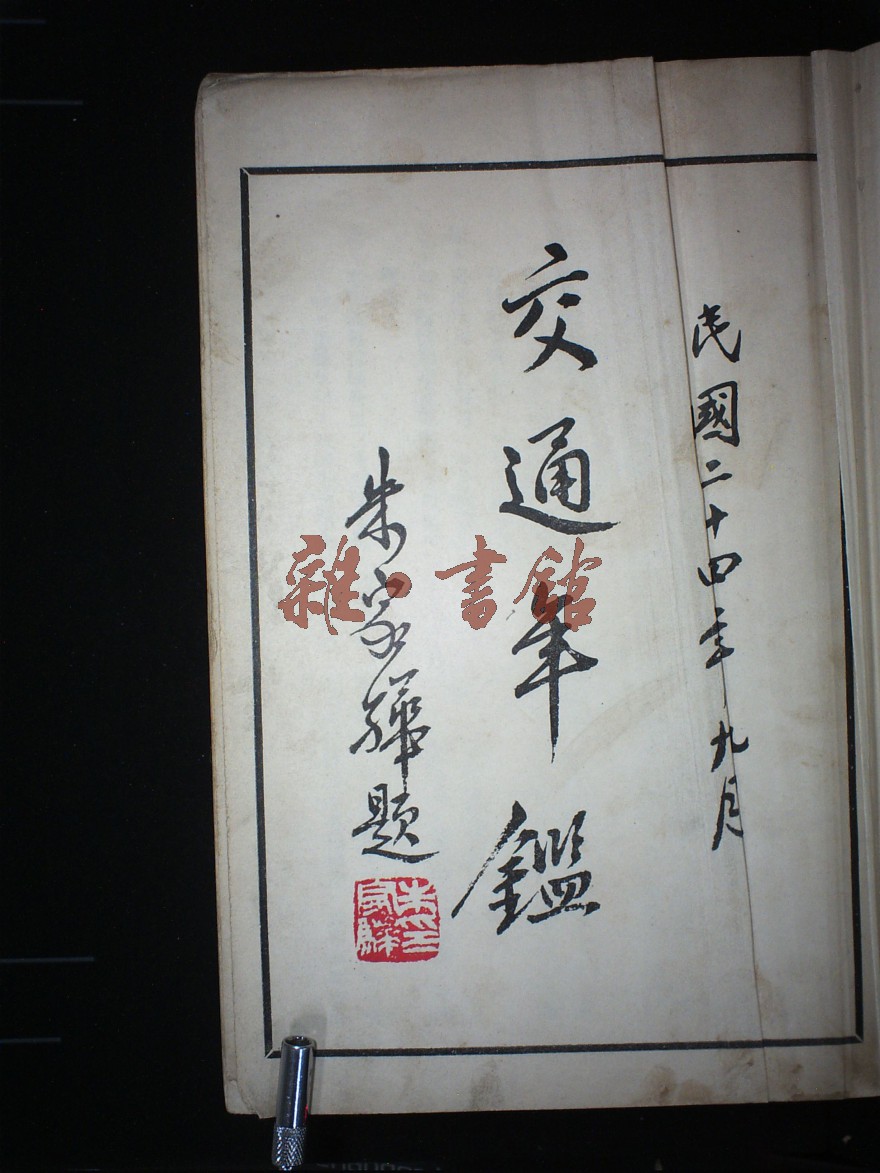 民國二十四年九月
交通年鑑
朱家驊題
雜·書館